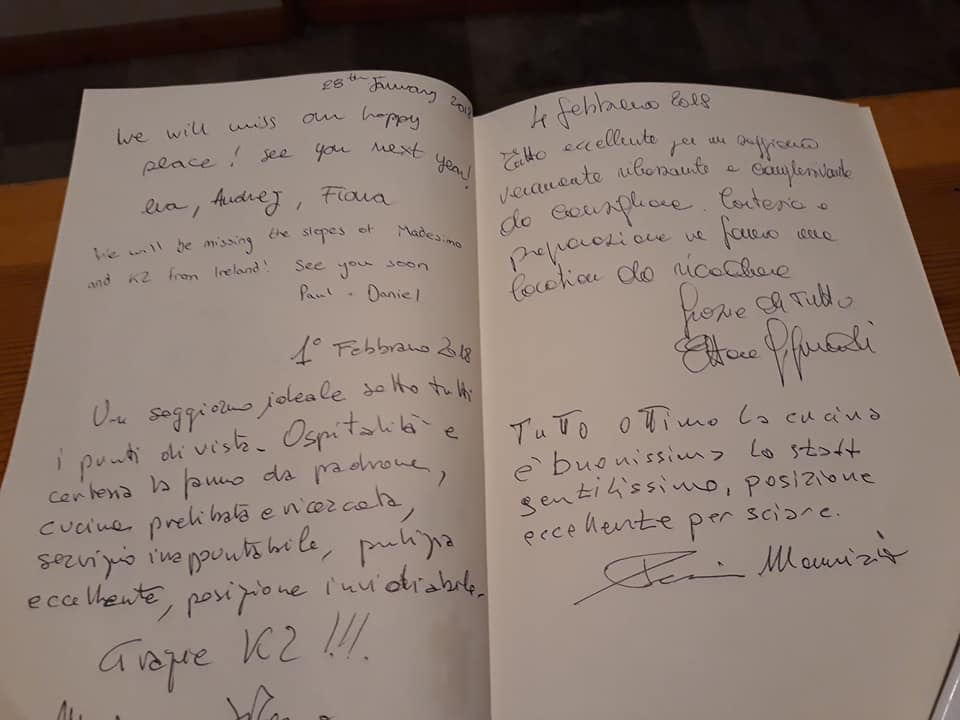 28th January 2018
We will miss our happy
place! see you next year!
eva, Andrej, Fiona
We will be missing the slopes of Madesimo
and K2 from Ireland! See you soon
Paul + Daniel
1° Febbraio 2018
Un soggiorno ideale sotto tutti
i punti di vista. Ospitalità e
cortesia la fanno da padrone,
cucina prelibata e ricercata,
servizio inappuntabile, pulizia
eccellente, posizione invidiabile.
Grazie K2 !!!
4 febbraio 2018
Tutto eccellente per un soggiorno
veramente rilassante e
da consigliare. Cortesia e
preparazione ne fanno una
location da ricordare
Grazie di tutto
Ettore
Tutto ottimo la cucina
è buonissima lo staff
gentilissimo, posizione
eccellente per sciare.
Maurizio